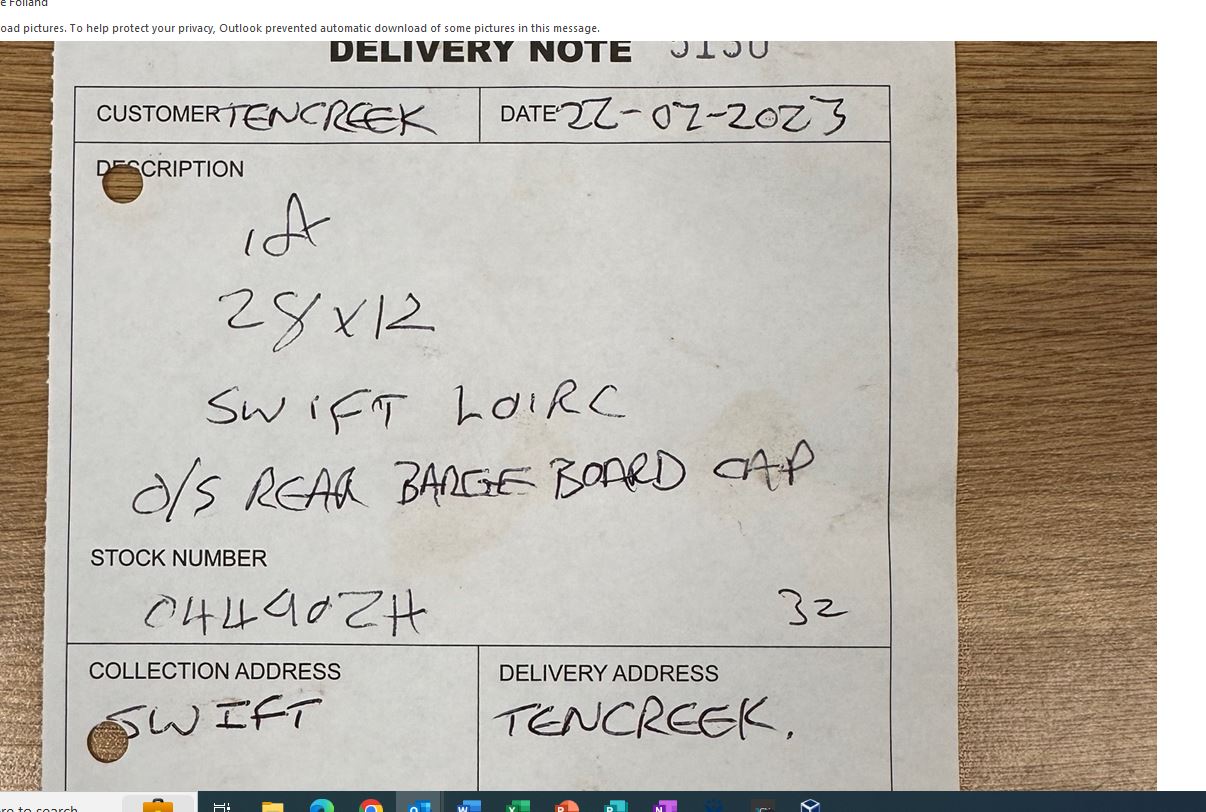 oad pictures. To help protect your privacy, Outlook prevented automatic download of some pictures in this message.
DELIVERY NOTE 5150
CUSTOMER TENCREEK DATE 22-02-2023
DESCRIPTION
1A
28X12
SWIFT LOIRC
O/S REAR BARGE BOARD CAP
STOCK NUMBER
044902H 32
COLLECTION ADDRESS DELIVERY ADDRESS
SWIFT TENCREEK.
re to search